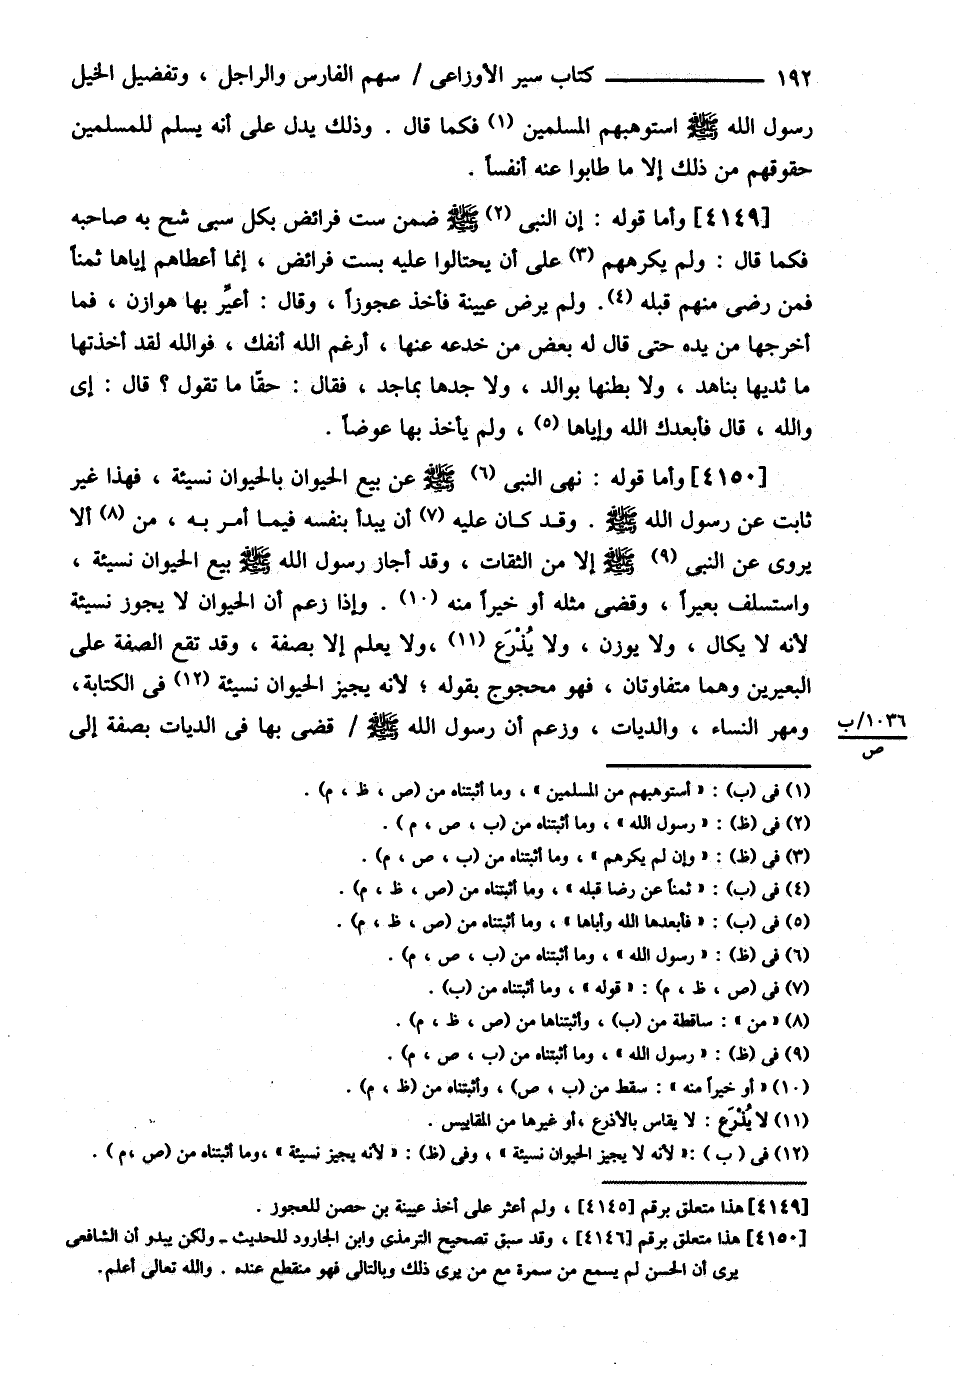 ١٩٢ ــــــــــــ كتاب سير الأوزاعى / سهم الفارس والراجل ، وتفضيل الخيل
رسول الله ﷺ استوهبهم المسلمين (١) فكما قال . وذلك يدل على أنه يسلم للمسلمين
حقوقهم من ذلك إلا ما طابوا عنه أنفساً .
[٤١٤٩] وأما قوله : إن النبى (٢) ﷺ ضمن ست فرائض بكل سبى شح به صاحبه
فكما قال : ولم يكرههم (٣) على أن يحتالوا عليه بست فرائض ، إنما أعطاهم إياها ثمناً
فمن رضى منهم قبله (٤). ولم يرض عيينة فأخذ عجوزاً ، وقال : أعيِّر بها هوازن ، فما
أخرجها من يده حتى قال له بعض من خدعه عنها ، أرغم الله أنفك ، فوالله لقد أخذتها
ما ثديها بناهد ، ولا بطنها بوالد ، ولا جدها بماجد ، فقال : حقّا ما تقول ؟ قال : إى
والله ، قال فأبعدك الله وإياها (٥) ، ولم يأخذ بها عوضاً .
[٤١٥٠] وأما قوله : نهى النبى (٦) ﷺ عن بيع الحيوان بالحيوان نسيئة ، فهذا غير
ثابت عن رسول الله ﷺ . وقد كان عليه (٧) أن يبدأ بنفسه فيما أمر به ، من (٨) ألا
يروى عن النبى (٩) ﷺ إلا من الثقات ، وقد أجاز رسول الله ﷺ بيع الحيوان نسيئة ،
واستسلف بعيراً ، وقضى مثله أو خيراً منه (١٠) . وإذا زعم أن الحيوان لا يجوز نسيئة
لأنه لا يكال ، ولا يوزن ، ولا يُذْرَع (١١) ،ولا يعلم إلا بصفة ، وقد تقع الصفة على
البعيرين وهما متفاوتان ، فهو محجوج بقوله ؛ لأنه يجيز الحيوان نسيئة (١٢) فى الكتابة،
ومهر النساء ، والديات ، وزعم أن رسول الله ﷺ / قضى بها فى الديات بصفة إلى
١٠٣٦/ب
ص
(١) فى (ب) : « أستوهبهم من المسلمين » ، وما أثبتناه من (ص ، ظ ، م) .
(٢) فى (ظ) : « رسول الله » ، وما أثبتناه من (ب ، ص ، م ) .
(٣) فى (ظ) : « وإن لم يكرهم » ، وما أثبتناه من (ب ، ص ، م) .
(٤) فى (ب) : « ثمناً عن رضا قبله » ، وما أثبتناه من (ص ، ظ ، م) .
(٥) فى (ب) : « فأبعدها الله وأباها » ، وما أثبتناه من (ص ، ظ ، م) .
(٦) فى (ظ) : « رسول الله » ، وما أثبتناه من (ب ، ص ، م) .
(٧) فى (ص ، ظ ، م) : « قوله » ، وما أثبتناه من (ب) .
(٨) « من » : ساقطة من (ب) ، وأثبتناها من (ص ، ظ ، م) .
(٩) فى (ظ) : « رسول الله » ، وما أثبتناه من (ب ، ص ، م) .
(١٠) « أو خيراً منه » : سقط من (ب ، ص) ، وأثبتناه من (ظ ، م) .
(١١) لا يُذْرَع : لا يقاس بالأذرع ،أو غيرها من المقاييس .
(١٢) فى ( ب ) :« لأنه لا يجيز الحيوان نسيئة » ، وفى (ظ) : « لأنه يجيز نسيئة » ،وما أثبتناه من (ص ،م ) .
[٤١٤٩] هذا متعلق برقم [٤١٤٥] ، ولم أعثر على أخذ عيينة بن حصن للعجوز .
[٤١٥٠] هذا متعلق برقم [٤١٤٦] ، وقد سبق تصحيح الترمذى وابن الجارود للحديث ـ ولكن يبدو أن الشافعى
يرى أن الحسن لم يسمع من سمرة مع من يرى ذلك وبالتالى فهو منقطع عنده . والله تعالى أعلم.